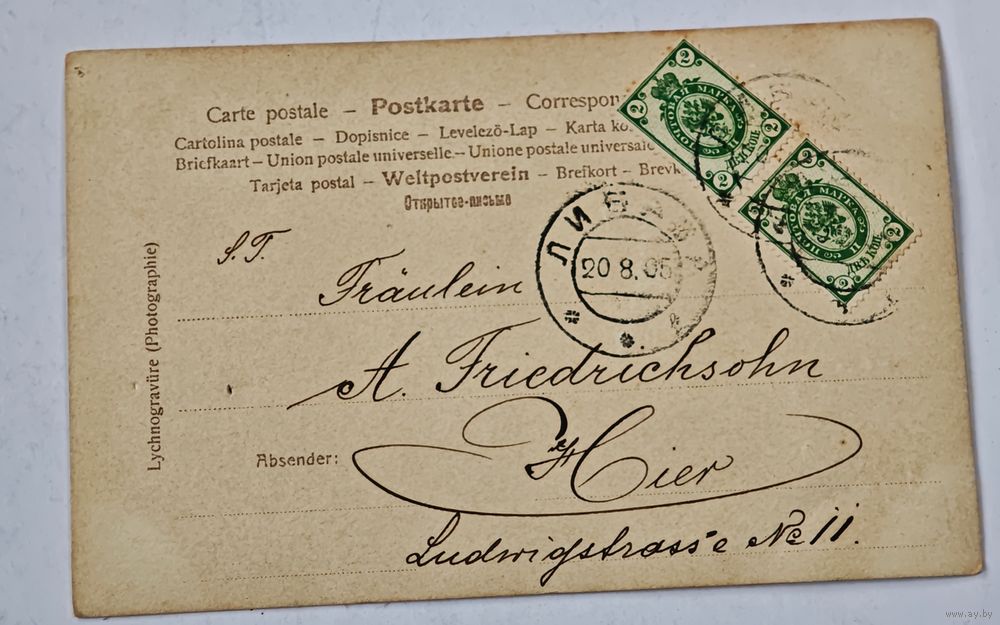 Carte postale – Postkarte – Correspon
Cartolina postale – Dopisnice – Levelező-Lap – Karta ko
Briefkaart – Union postale universelle – Unione postale universale
Tarjeta postal – Weltpostverein – Brefkort – Brevk
Открытое-письмо
2 2
ПОЧТОВАЯ МАРКА
2 2
Двѣ Коп.
2 2
ПОЧТОВАЯ МАРКА
2 2
Двѣ Коп.
ЛИБАВА
20 8. 05
S. T.
Fräulein
A. Friedrichsohn
Hier
Absender:
Ludwigstrasse No 11.
Lychnogravüre (Photographie)
www.ay.by